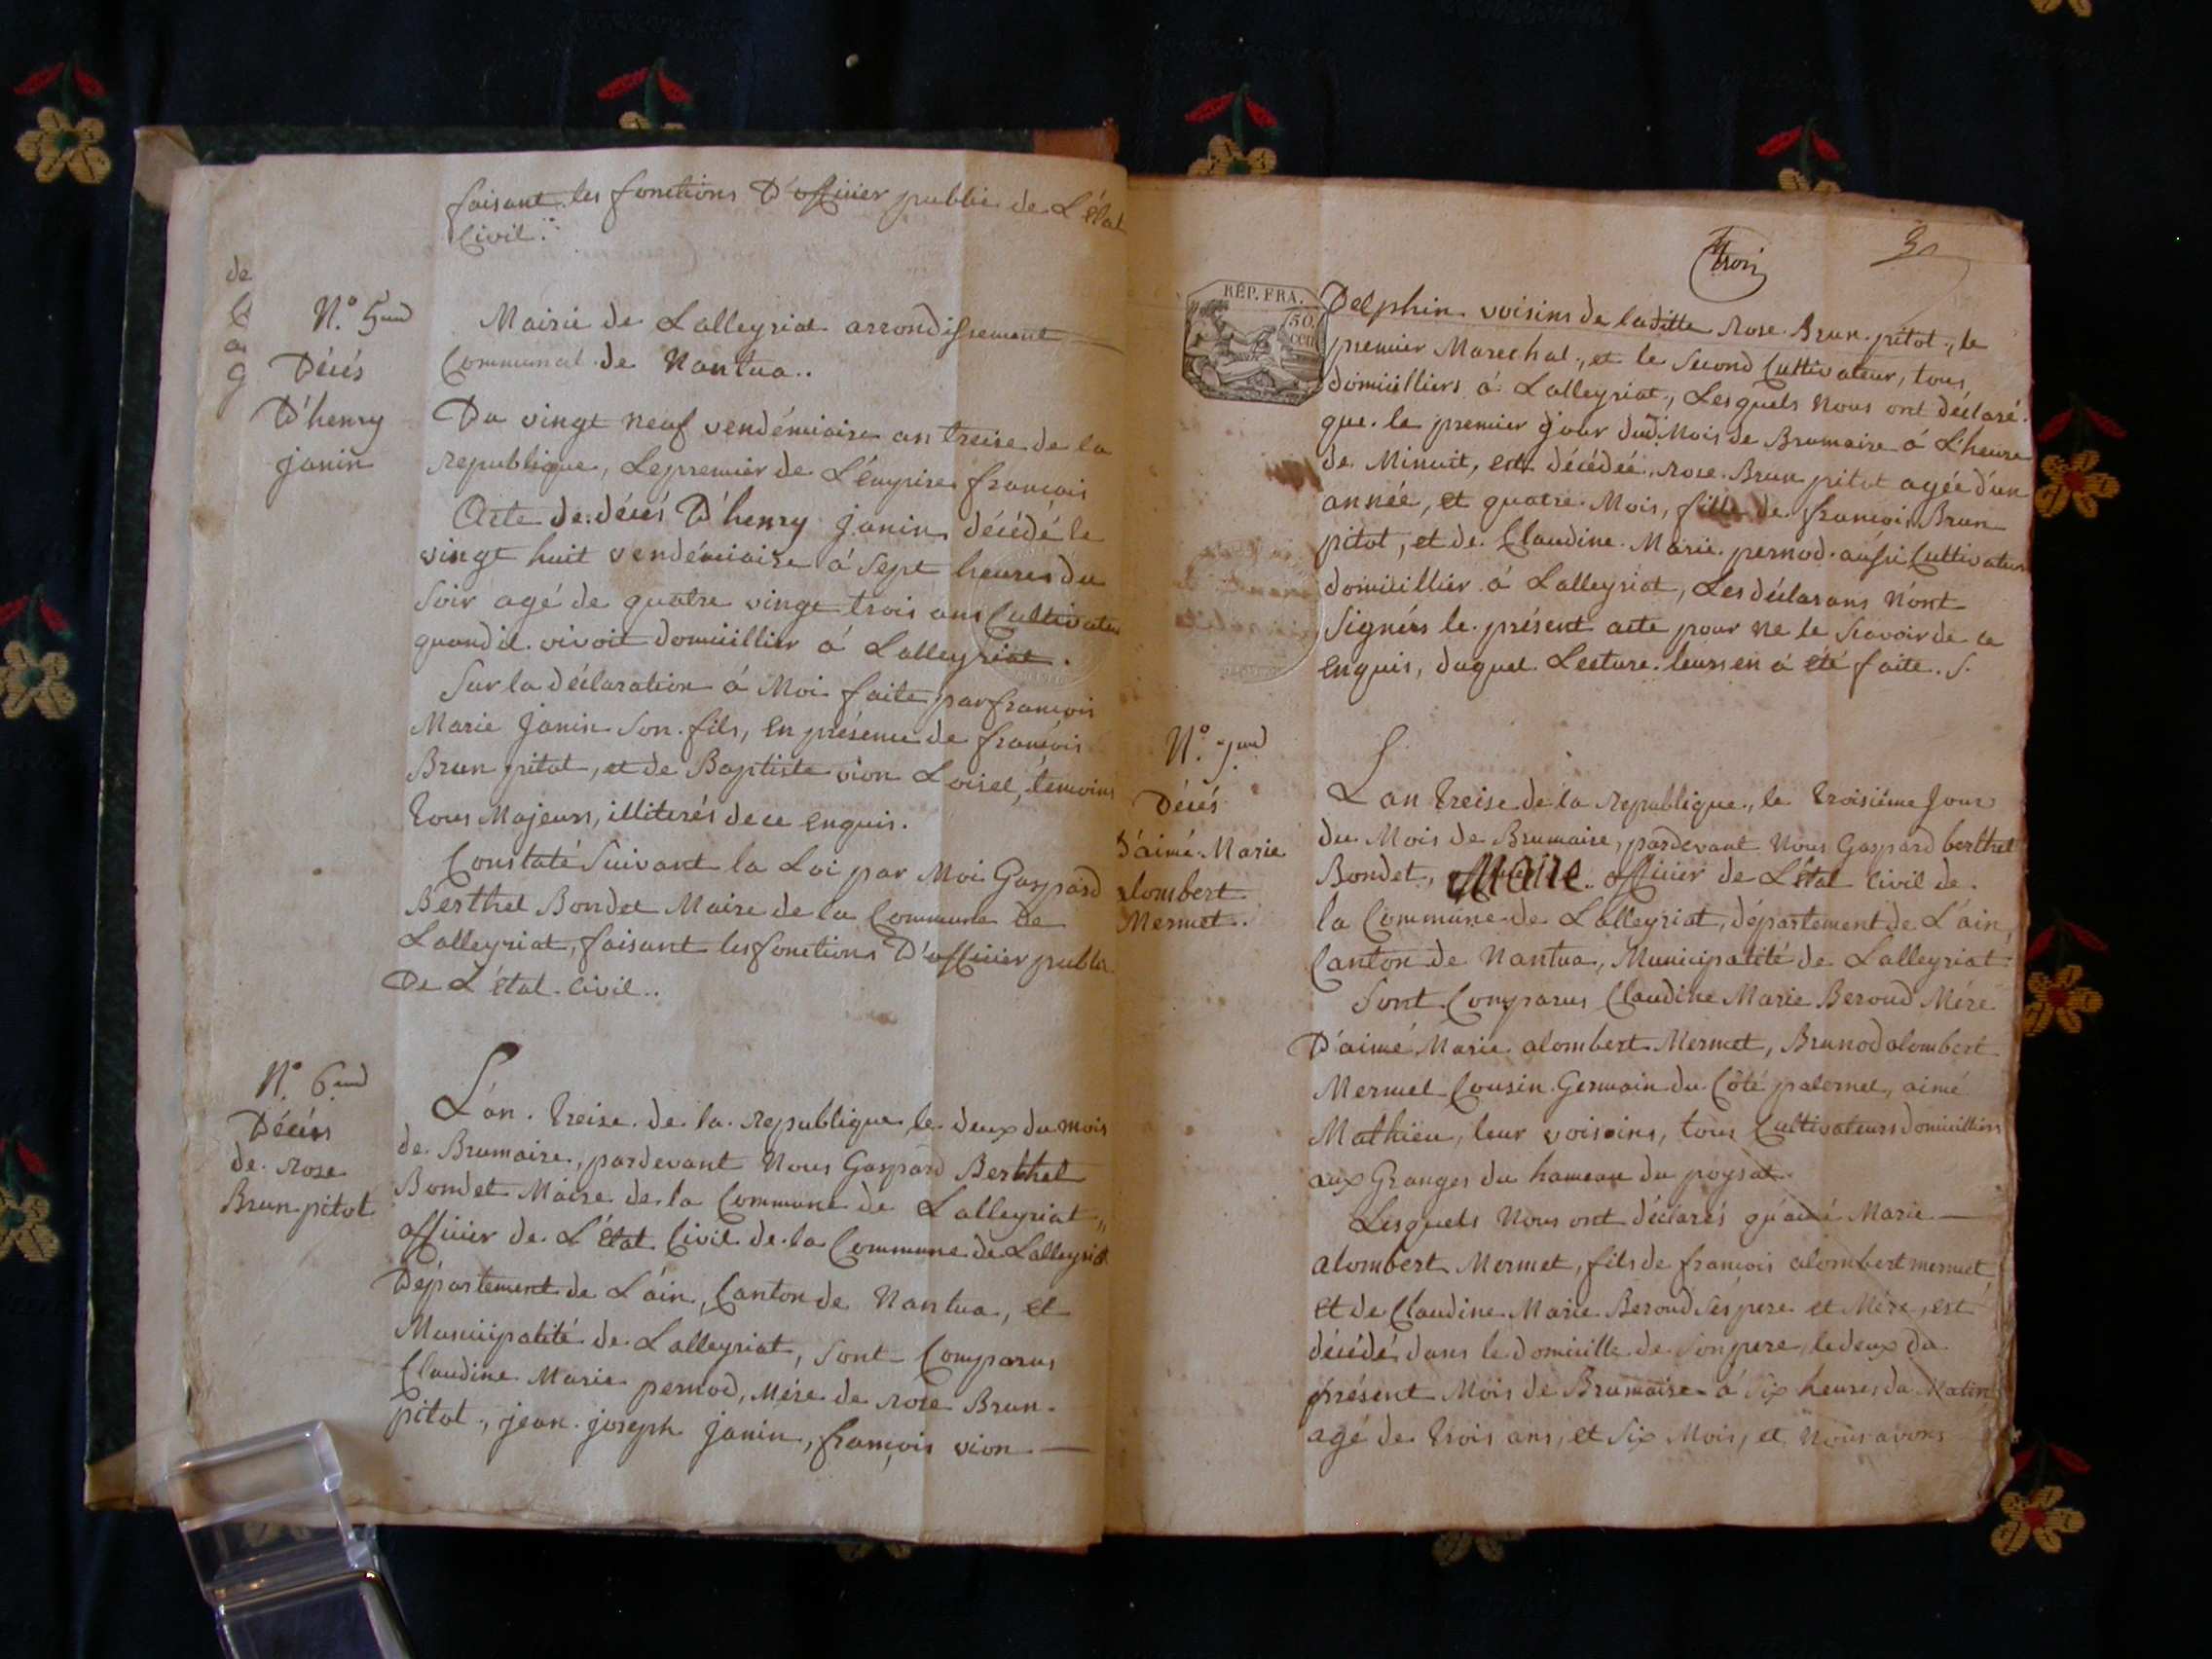 faisant les fonctions D'officier public de L'état
Civil.
de
N.º 5
Décés
D'henry
janin
Mairie de Lalleyriat arrondissement
Communal de Nantua..
Du vingt neuf vendémiaire an treise de la
republique, Le premier de L'émpire françois
Acte de décés D'henry janin décédé le
vingt huit vendémiaire á Sept heures du
Soir agé de quatre vingt trois ans Cultivateur
quand il vivoit domicillier á Lalleyriat.
Sur la déclaration á Moi faite par françois
Marie janin Son fils, en présence de françois
Brun pitot, et de Baptiste vion Loisel, témoins
tous Majeurs, illiterés de ce enquis.
Constaté Suivant la Loi par Moi Gaspard
Berthet Bondet Maire de la Commune de
Lalleyriat, faisant les fonctions D'officier public
De L'état Civil..
N.º 6
Décés
de rose
Brun pitot
L'an treise de la republique le deux du mois
de Brumaire, pardevant Nous Gaspard Berthet
Bondet Maire de la Commune de Lalleyriat,
officier de L'état Civil de la Commune de Lalleyriat
Département de L'ain, Canton de Nantua, et
Municipalité de Lalleyriat, Sont Comparus
Claudine Marie pernod, Mére de rose Brun
pitot, jean joseph janin, françois vion
trois
3
RÉP. FRA.
50
cen
Delphin voisins de laditte rose Brun pitot, le
premier Marechal, et le Second Cultivateur, tous
domicilliers á Lalleyriat, Lesquels Nous ont déclaré
que le premier jour dud. Mois de Brumaire á L'heure
de Minuit, est décédée rose Brun pitot agée d'un
année, et quatre Mois, fille de françois Brun
pitot, et de Claudine Marie pernod aussi Cultivateur
domicillier á Lalleyriat, Les déclarans N'ont
Signérs le présent acte pour ne le Scavoir de ce
enquis, duquel Lecture leurs en á été faite. S.
N.º 7
Décés
d'aimé Marie
alombert
Mermet.
L an treise de la republique, le troisiéme Jour
du Mois de Brumaire, pardevant Nous Gaspard berthet
Bondet, Maire officier de L'état Civil de
la Commune de Lalleyriat, département de L'ain,
Canton de Nantua, Municipalité de Lalleyriat
Sont Comparus Claudine Marie Beroud Mére
D'aimé Marie alombert Mermet, Brunod alombert
Mermet Cousin Germain du Côté paternel, aimé
Mathieu, leur voisins, tous Cultivateurs domicilliers
aux Granges du hameau du poysat.
Lesquels Nous ont déclarés qu'aimé Marie
alombert Mermet, fils de françois alombert mermet
et de Claudine Marie Beroud Ses pere et Mére, est
décédé dans le domicille de Son pere, le deux du
présent Mois de Brumaire á Six heures du Matin
agé de trois ans, et Six Mois, et Nous avons